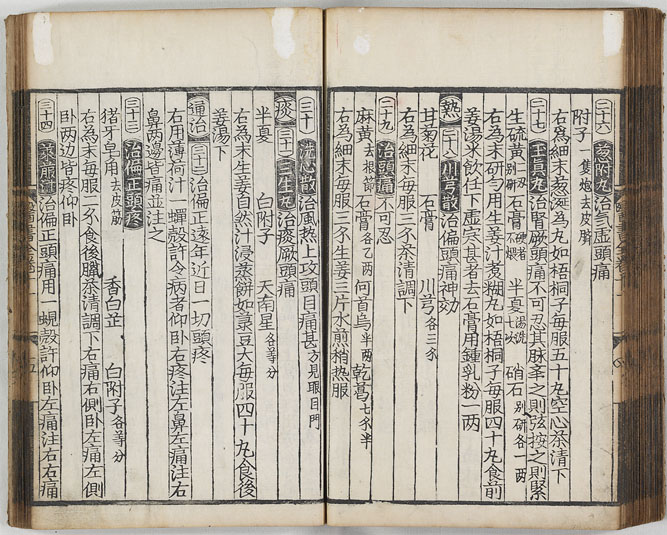 二十六 葱附丸 治氣虛頭痛
附子一隻炮去皮臍
右為細末葱涎為丸如梧桐子每服五十丸空心茶清下
二十七 玉真丸 治腎厥頭痛不可忍其脉舉之則弦按之則緊
生硫黃 別研 石膏 硬者不煆 半夏 湯洗七次 硝石 別研各一兩
右為末研勻用生姜汁煑糊丸如梧桐子每服四十丸食前
姜湯米飲任下虛寒甚者去石膏用鍾乳粉一兩
熱 二十八 川芎散 治偏頭痛神効
甘菊花 石膏 川芎各三分
右為細末每服三分茶清調下
二十九 治頭痛不可忍
麻黃 去根節 石膏 各乙兩 何首烏 半兩 乾葛 七分半
右為細末每服三分生姜三片水煎稍热服
三十 洗心散 治風热上攻頭目痛甚方見眼目門
痰 三十一 三生丸 治痰厥頭痛
半夏 白附子 天南星各等分
右為末生姜自然汁浸蒸餅如菉豆大每服四十丸食後
姜湯下
通治 三十二 治偏正遠年近日一切頭疼
右用薄荷汁一蜆殼許令病者仰卧右疼注左鼻左痛注右
鼻两邊皆痛並注之
三十三 治偏正頭疼
猪牙皂角 去皮筋 香白芷 白附子各等分
右為末每服二分食後臘茶清調下右痛右側卧左痛左側
卧两边皆疼仰卧
三十四 治偏正頭痛用一蜆殼許仰卧左痛注右右痛